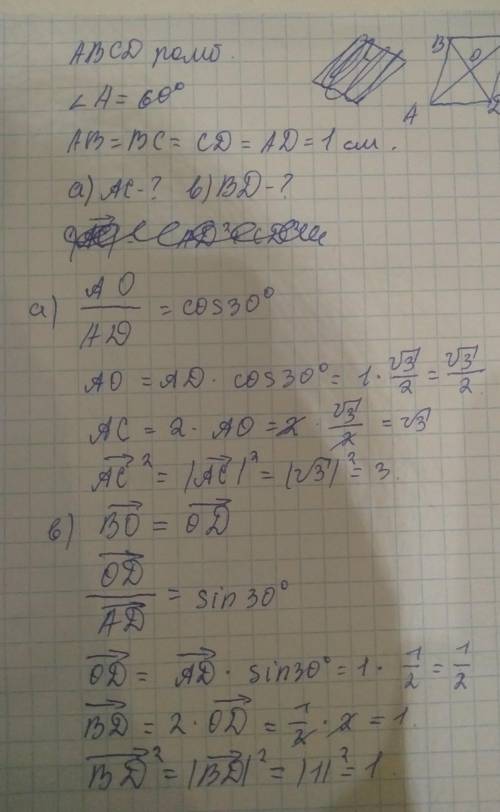 ABCD ромб.
∠A = 60°
AB = BC = CD = AD = 1 см.
a) AC - ? в) BD - ?
B O
A D
a) AO / AD = cos30°
AO = AD · cos30° = 1 · √3/2 = √3/2
AC = 2 · AO = 2 · √3/2 = √3
AC⃗² = |AC⃗|² = |√3|² = 3.
в) BO⃗ = OD⃗
OD⃗ / AD⃗ = sin30°
OD⃗ = AD⃗ · sin30° = 1 · 1/2 = 1/2
BD⃗ = 2 · OD⃗ = 1/2 · 2 = 1.
BD⃗² = |BD⃗|² = |1|² = 1.